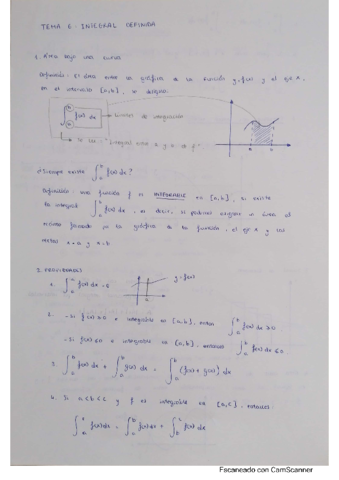 TEMA 6: INTEGRAL DEFINIDA
1. Área bajo una curva
Definición: El área entre la gráfica de la función y=f(x) y el eje x,
en el intervalo [a,b], se designa:
∫ f(x) dx → Límites de integración
Se lee "Integral entre a y b de f"
a b
¿Siempre existe ∫ₐᵇ f(x) dx?
Definición: una función f es INTEGRABLE en [a,b], si existe
la integral ∫ₐᵇ f(x) dx, es decir, si podemos asignar un área al
recinto formado por la gráfica de la función, el eje x y las
rectas x=a y x=b.
2. PROPIEDADES
1. ∫ₐᵃ f(x) dx = 0 y=f(x)
2. - Si f(x) ≥ 0 e integrable en [a,b], entonces ∫ₐᵇ f(x) dx ≥ 0
- Si f(x) ≤ 0 e integrable en [a,b], entonces ∫ₐᵇ f(x) dx ≤ 0
3. ∫ₐᵇ f(x) dx + ∫ₐᵇ g(x) dx = ∫ₐᵇ (f(x) + g(x)) dx
4. Si a < b < c y f es integrable en [a,c], entonces:
∫ₐᶜ f(x) dx = ∫ₐᵇ f(x) dx + ∫ᵇᶜ f(x) dx
Escaneado con CamScanner